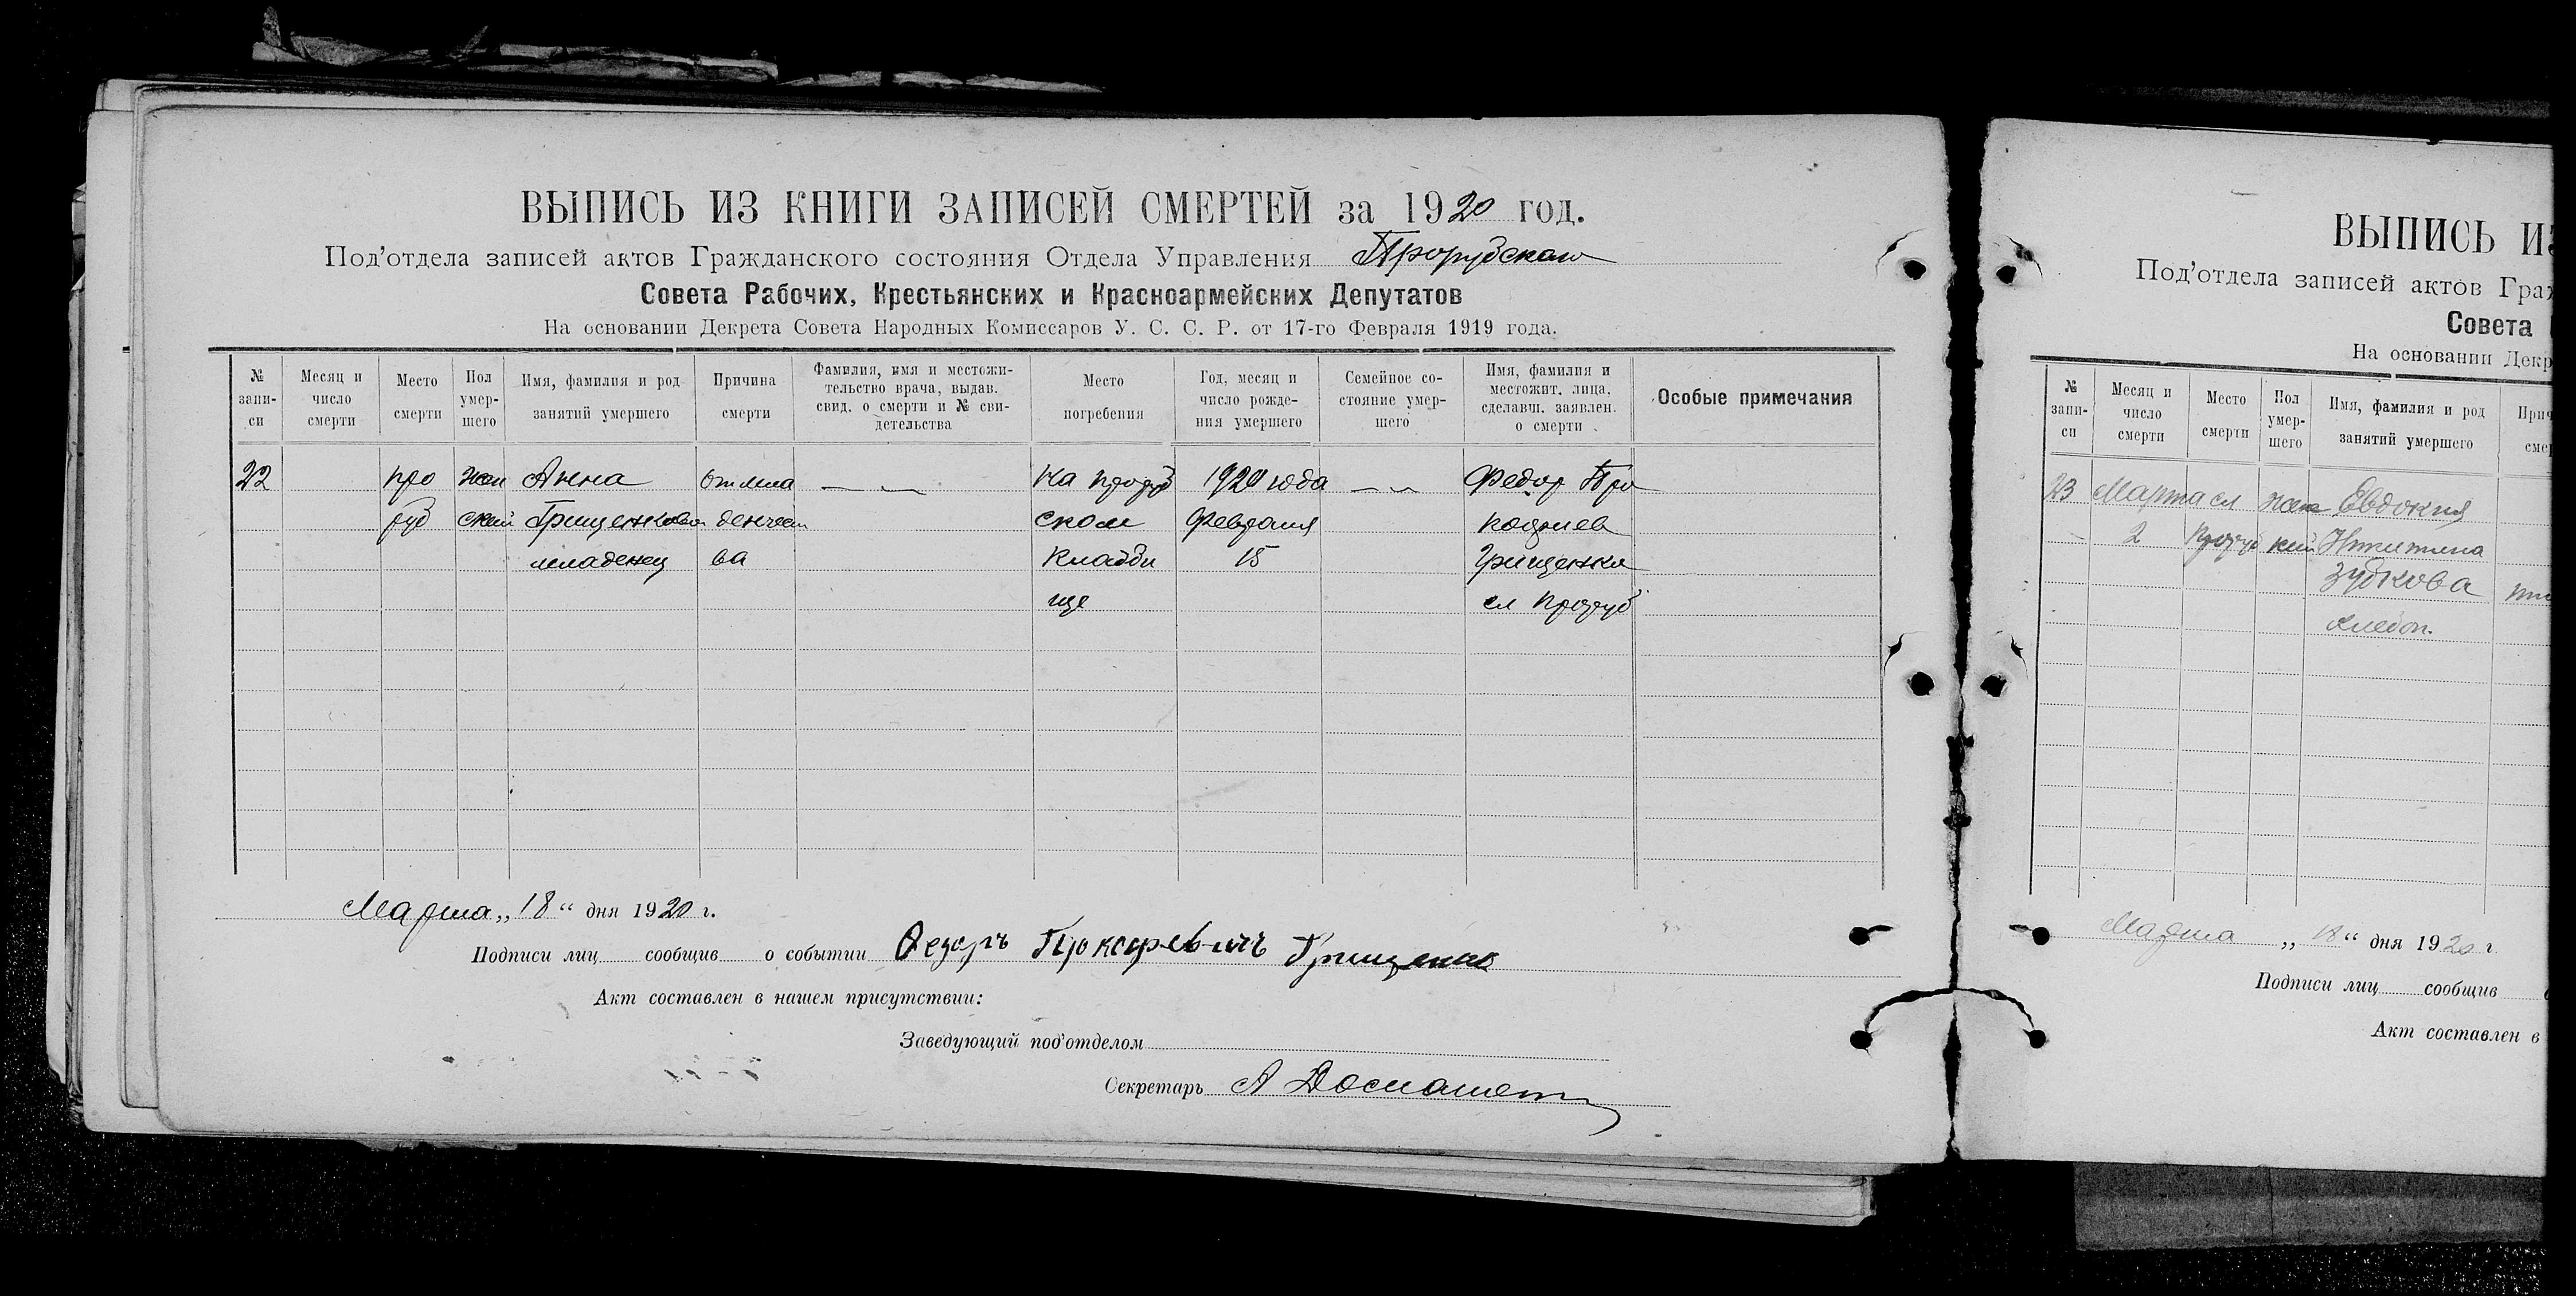 ВЫПИСЬ ИЗ КНИГИ ЗАПИСЕЙ СМЕРТЕЙ за 1920 год.
Под'отдела записей актов Гражданского состояния Отдела Управления Прорубскаго
Совета Рабочих, Крестьянских и Красноармейских Депутатов
На основании Декрета Совета Народных Комиссаров У. С. С. Р. от 17-го Февраля 1919 года.
№ запи- си
Месяц и число смерти
Место смерти
Пол умер- шего
Имя, фамилия и род занятий умершего
Причина смерти
Фамилия, имя и местожи- тельство врача, выдав. свид. о смерти и № сви- детельства
Место погребения
Год, месяц и число рожде- ния умершего
Семейное со- стояние умер- шего
Имя, фамилия и местожит. лица, сделавш. заявлен. о смерти
Особые примечания
22 про жен Анна отмла на прору 1920 года Федор Про
руб ский Грищенкова денчест ском Февраля кофиев
младенец ва кладби 15 Грищенко
ще сл Проруб
Марта „18“ дня 1920 г.
Подписи лиц сообщив о событии Федоръ Грищенко
Акт составлен в нашем присутствии:
Заведующий под'отделом
Секретарь А
ВЫПИСЬ ИЗ
Под'отдела записей актов Граж
Совета
На основании Декр
№ запи- си
Месяц и число смерти
Место смерти
Пол умер- шего
Имя, фамилия и род занятий умершего
Прич сме
23 Марта сл жен Евдокия
2 Проруб кий Никитина
Зубкова
хлебоп.
Марта „18“ дня 1920 г.
Подписи лиц сообщив
Акт составлен в